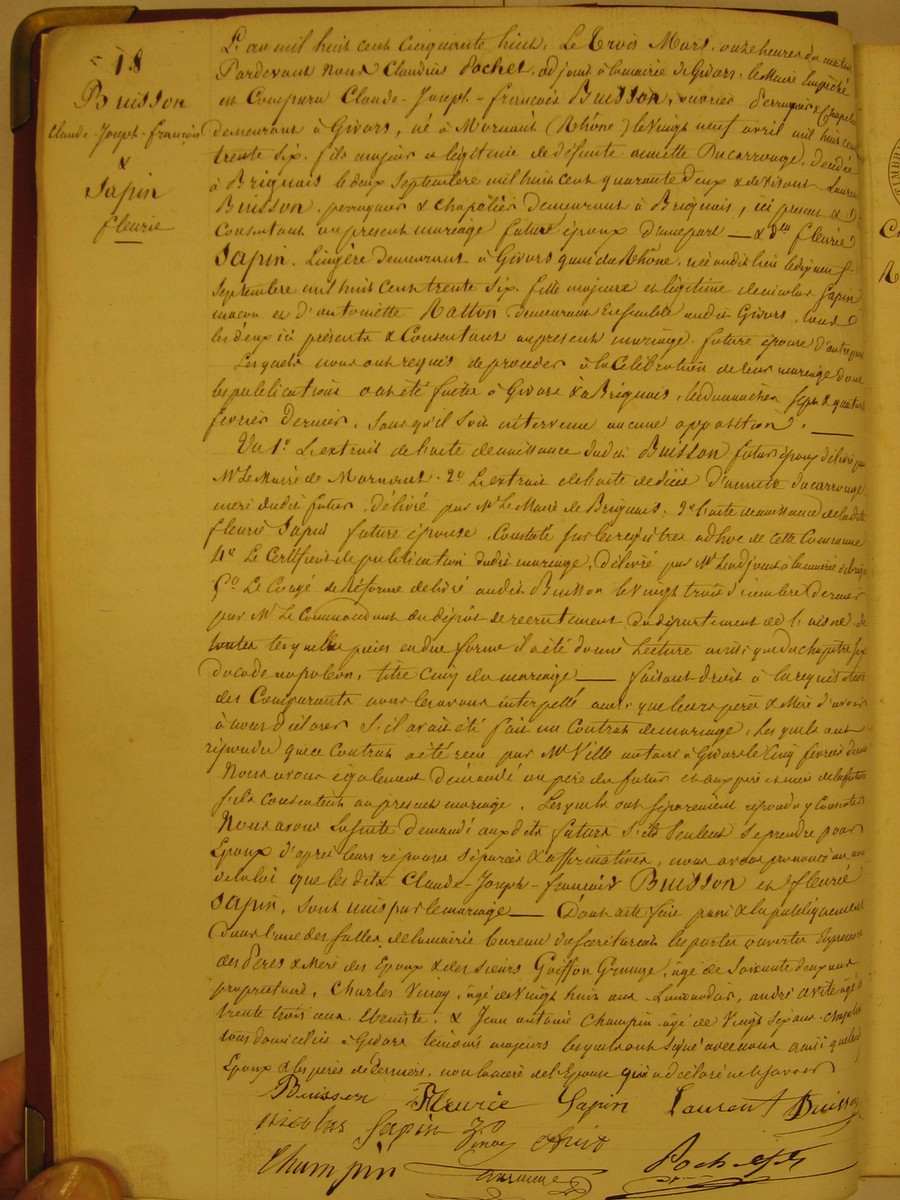 18
Buisson
Claude-Joseph-françois
&
Sapin
fleurie
L'an mil huit cent cinquante huit, Le Trois Mars, onze heures du matin
Pardevant nous Claudius Pochet, adjoint à la mairie de Givors, le Maire Empêché
est Comparu Claude-Joseph-françois Buisson, ouvrier perruquier & chapelier
demeurant à Givors, né à Mornant (Rhône) le vingt neuf avril mil huit cent
trente six, fils majeur et légitime de défunte annette Ducarrouge, décédée
à Brignais le deux Septembre mil huit cent quarante deux & de vivant Laurent
Buisson, perruquier & chapelier demeurant à Brignais, ici présent &
Consentant au présent mariage futur époux d'une part — & Dlle fleurie
Sapin, Lingère demeurant à Givors quai du Rhône, née audit lieu le dix neuf
Septembre mil huit cent trente six, fille majeure et légitime de nicolas Sapin
maçon et d'antoinette Ratton demeurant Ensemble audit Givors, tous
les deux ici présents & Consentant au présent mariage, future épouse d'autre part
Lesquels nous ont requis de procéder à la Célébration de leur mariage dont
les publications ont été faites à Givors & à Brignais, les dimanches Sept & quatorze
février dernier, Sans qu'il soit intervenu aucune opposition. —
Vu 1° L'extrait de l'acte de naissance dudit Buisson futur époux délivré par
Mr Le Maire de Mornant. 2° L'extrait de l'acte de décès d'annette Ducarrouge
mère dudit futur, délivré par Mr Le Maire de Brignais. 3° l'acte de naissance de ladite
fleurie Sapin future épouse, Constaté sur les registres adhoc de cette Commune
4° Le Certificat de publication dudit mariage, délivré par Mr L'adjoint à la mairie de Brignais
5° Le Congé de Réforme délivré audit Buisson le vingt trois décembre dernier
par Mr Le Commandant du dépôt de recrutement du département de l'aisne de
toutes lesquelles pièces en due forme il a été donné Lecture ainsi que du chapitre six
du code napoléon, titre cinq du mariage — faisant droit à la requisition
des Comparants nous les avons interpellé ainsi que leurs pères & Mère d'avoir
à nous déclarer S'il avait été fait un Contrat de mariage, Lesquels ont
répondu que ce Contrat a été reçu par Me Ville notaire à Givors le Cinq février dernier
Nous avons également demandé au père du futur et aux père et mère de la future
s'ils consentent au présent mariage, Lesquels ont séparément répondu y Consentir
Nous avons Ensuite demandé auxdits futurs s'ils Veulent se prendre pour
Epoux d'après leurs réponses Séparées & affirmatives, nous avons prononcé au nom
de la loi que les dits Claude-Joseph-françois Buisson et fleurie
Sapin, sont unis par le mariage — Dont acte fait passé & lu publiquement
dans l'une des salles de la mairie bureau du secrétariat les portes ouvertes En présence
des Pères & Mère des Epoux & des Sieurs Goiffon âgé de Soixante deux ans
propriétaire, Charles Vinay, âgé de Vingt huit ans Limonadier, andré avite âgé de
trente trois ans Ebéniste, & Jean antoine Champin âgé de Vingt Six ans chapelier
tous domiciliés à Givors témoins majeurs lesquels ont signé avec nous ainsi que les
Epoux & les pères de derniers, non la mère de l'Epouse qui a déclaré ne le savoir
Buisson Fleurie Sapin Laurent Buisson
nicolas Sapin Vinay Avit
Champin Pochet